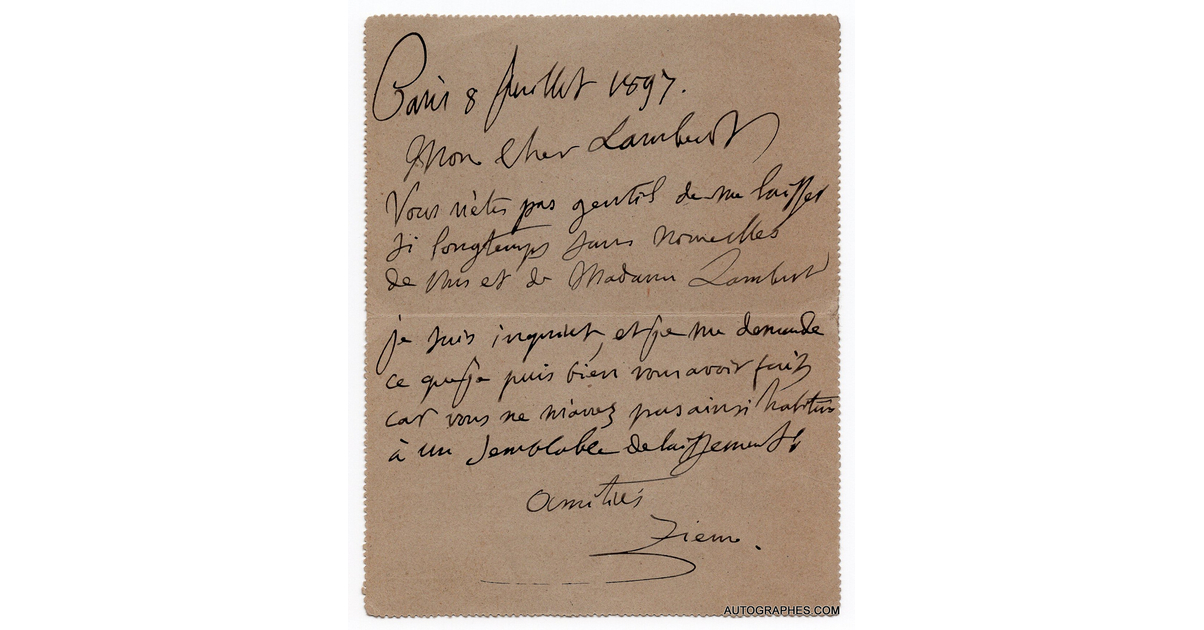 Paris 8 Juillet 1897.
Mon Cher Lambert
Vous n'êtes pas gentil de me laisser
si longtemps sans nouvelles
de vous et de Madame Lambert
je suis inquiet, et je me demande
ce que je puis bien vous avoir fait
car vous ne m'avez pas ainsi habitué
à un semblable delaissement
Amitiés
Ziem.
AUTOGRAPHES.COM